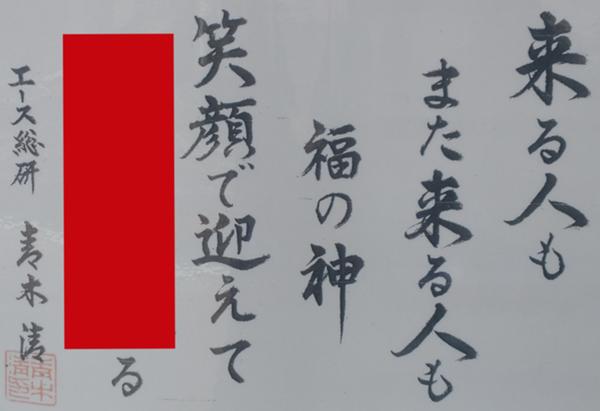 来る人も
また来る人も
福の神
笑顔で迎えて
る
エース総研 青木清